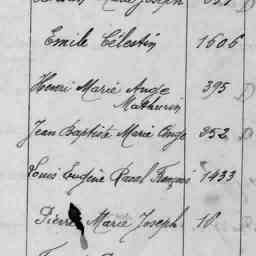 Joseph 651
Emile Célestin 1606
Henri Marie Ange 395 D
Mathurin
Jean Baptiste Marie Ange 352 D
Louis Eugène Raoul François 1433
Pierre Marie Joseph 18